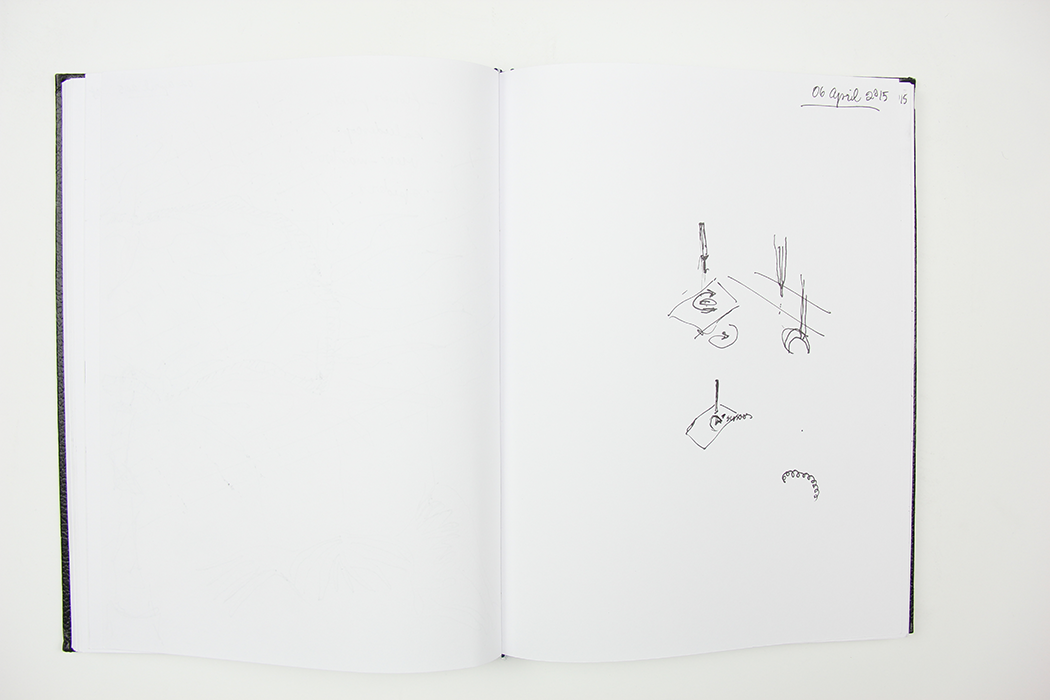 06 April 2015 '15